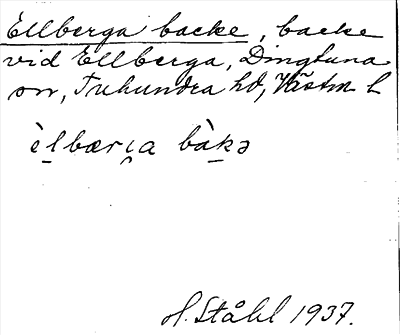 Ellberga backe, backe
vid Ellberga, Dingtuna
sn, Tuhundra hd, Västm l
èlbærɩ̯a bàkə
H. Ståhl 1937.